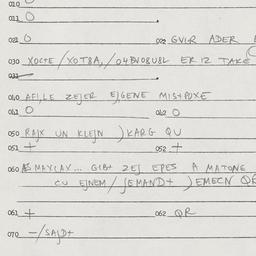 010 O
011 O
021 O 022 GVIR ADER
030 XOCTE / XOTBA, / O4BVOBUBL ER IZ TAKE
031
040 AFILE ZEJER EJGENE MISHPOXE
041 O 042 O
050 RAJX UN KLEJN ) KARG QU
051 + 052 +
060 AZ MAX(AX... GIBT ZEJ EPES A MATONE
CU EJNEM / JEMAND+ ) EMECN QR
061 + 062 QR
070 —/SAJD+